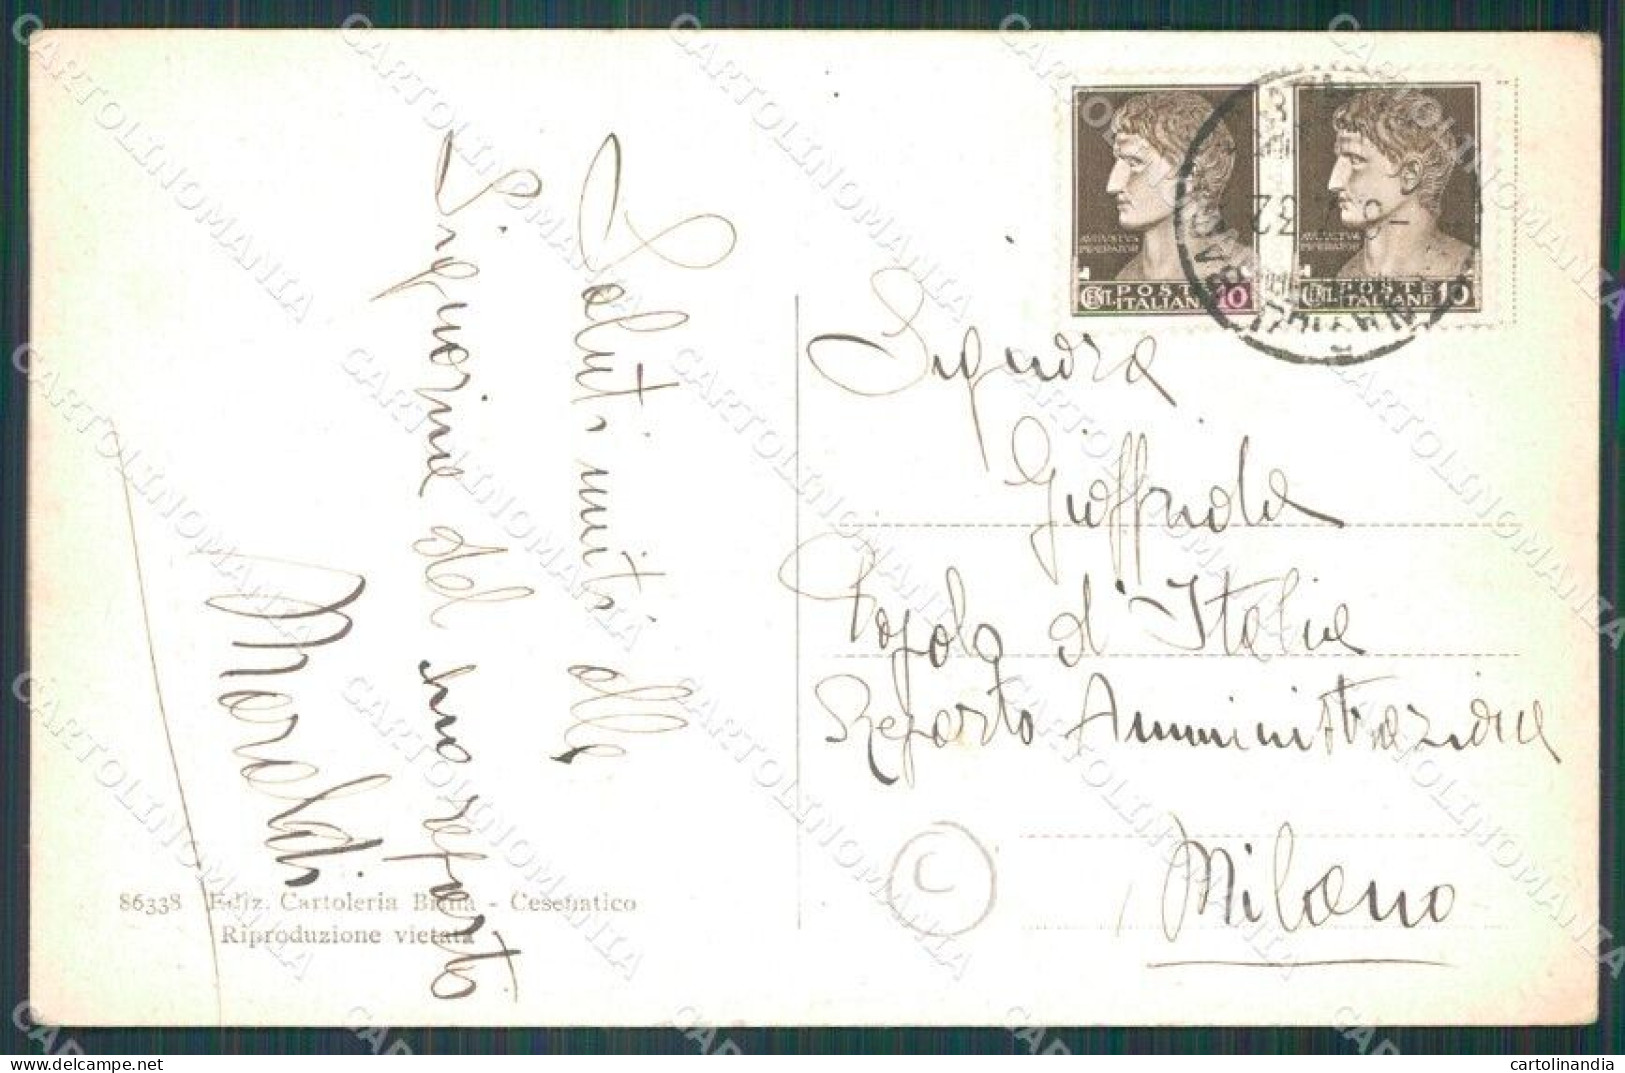 Saluti uniti alle
Signorine del suo reparto
Maraldi
86338 Ediz. Cartoleria - Cesenatico
Riproduzione vietata
AVGVSTVS
IMPERATOR
CENT. POSTE ITALIANE 10
AVGVSTVS
IMPERATOR
CENT. POSTE ITALIANE 10
Signora
Gioffrida
Popolo d'Italia
Reparto Amministrazione
Milano
C
CARTOLINOMANIA
cartolinandia